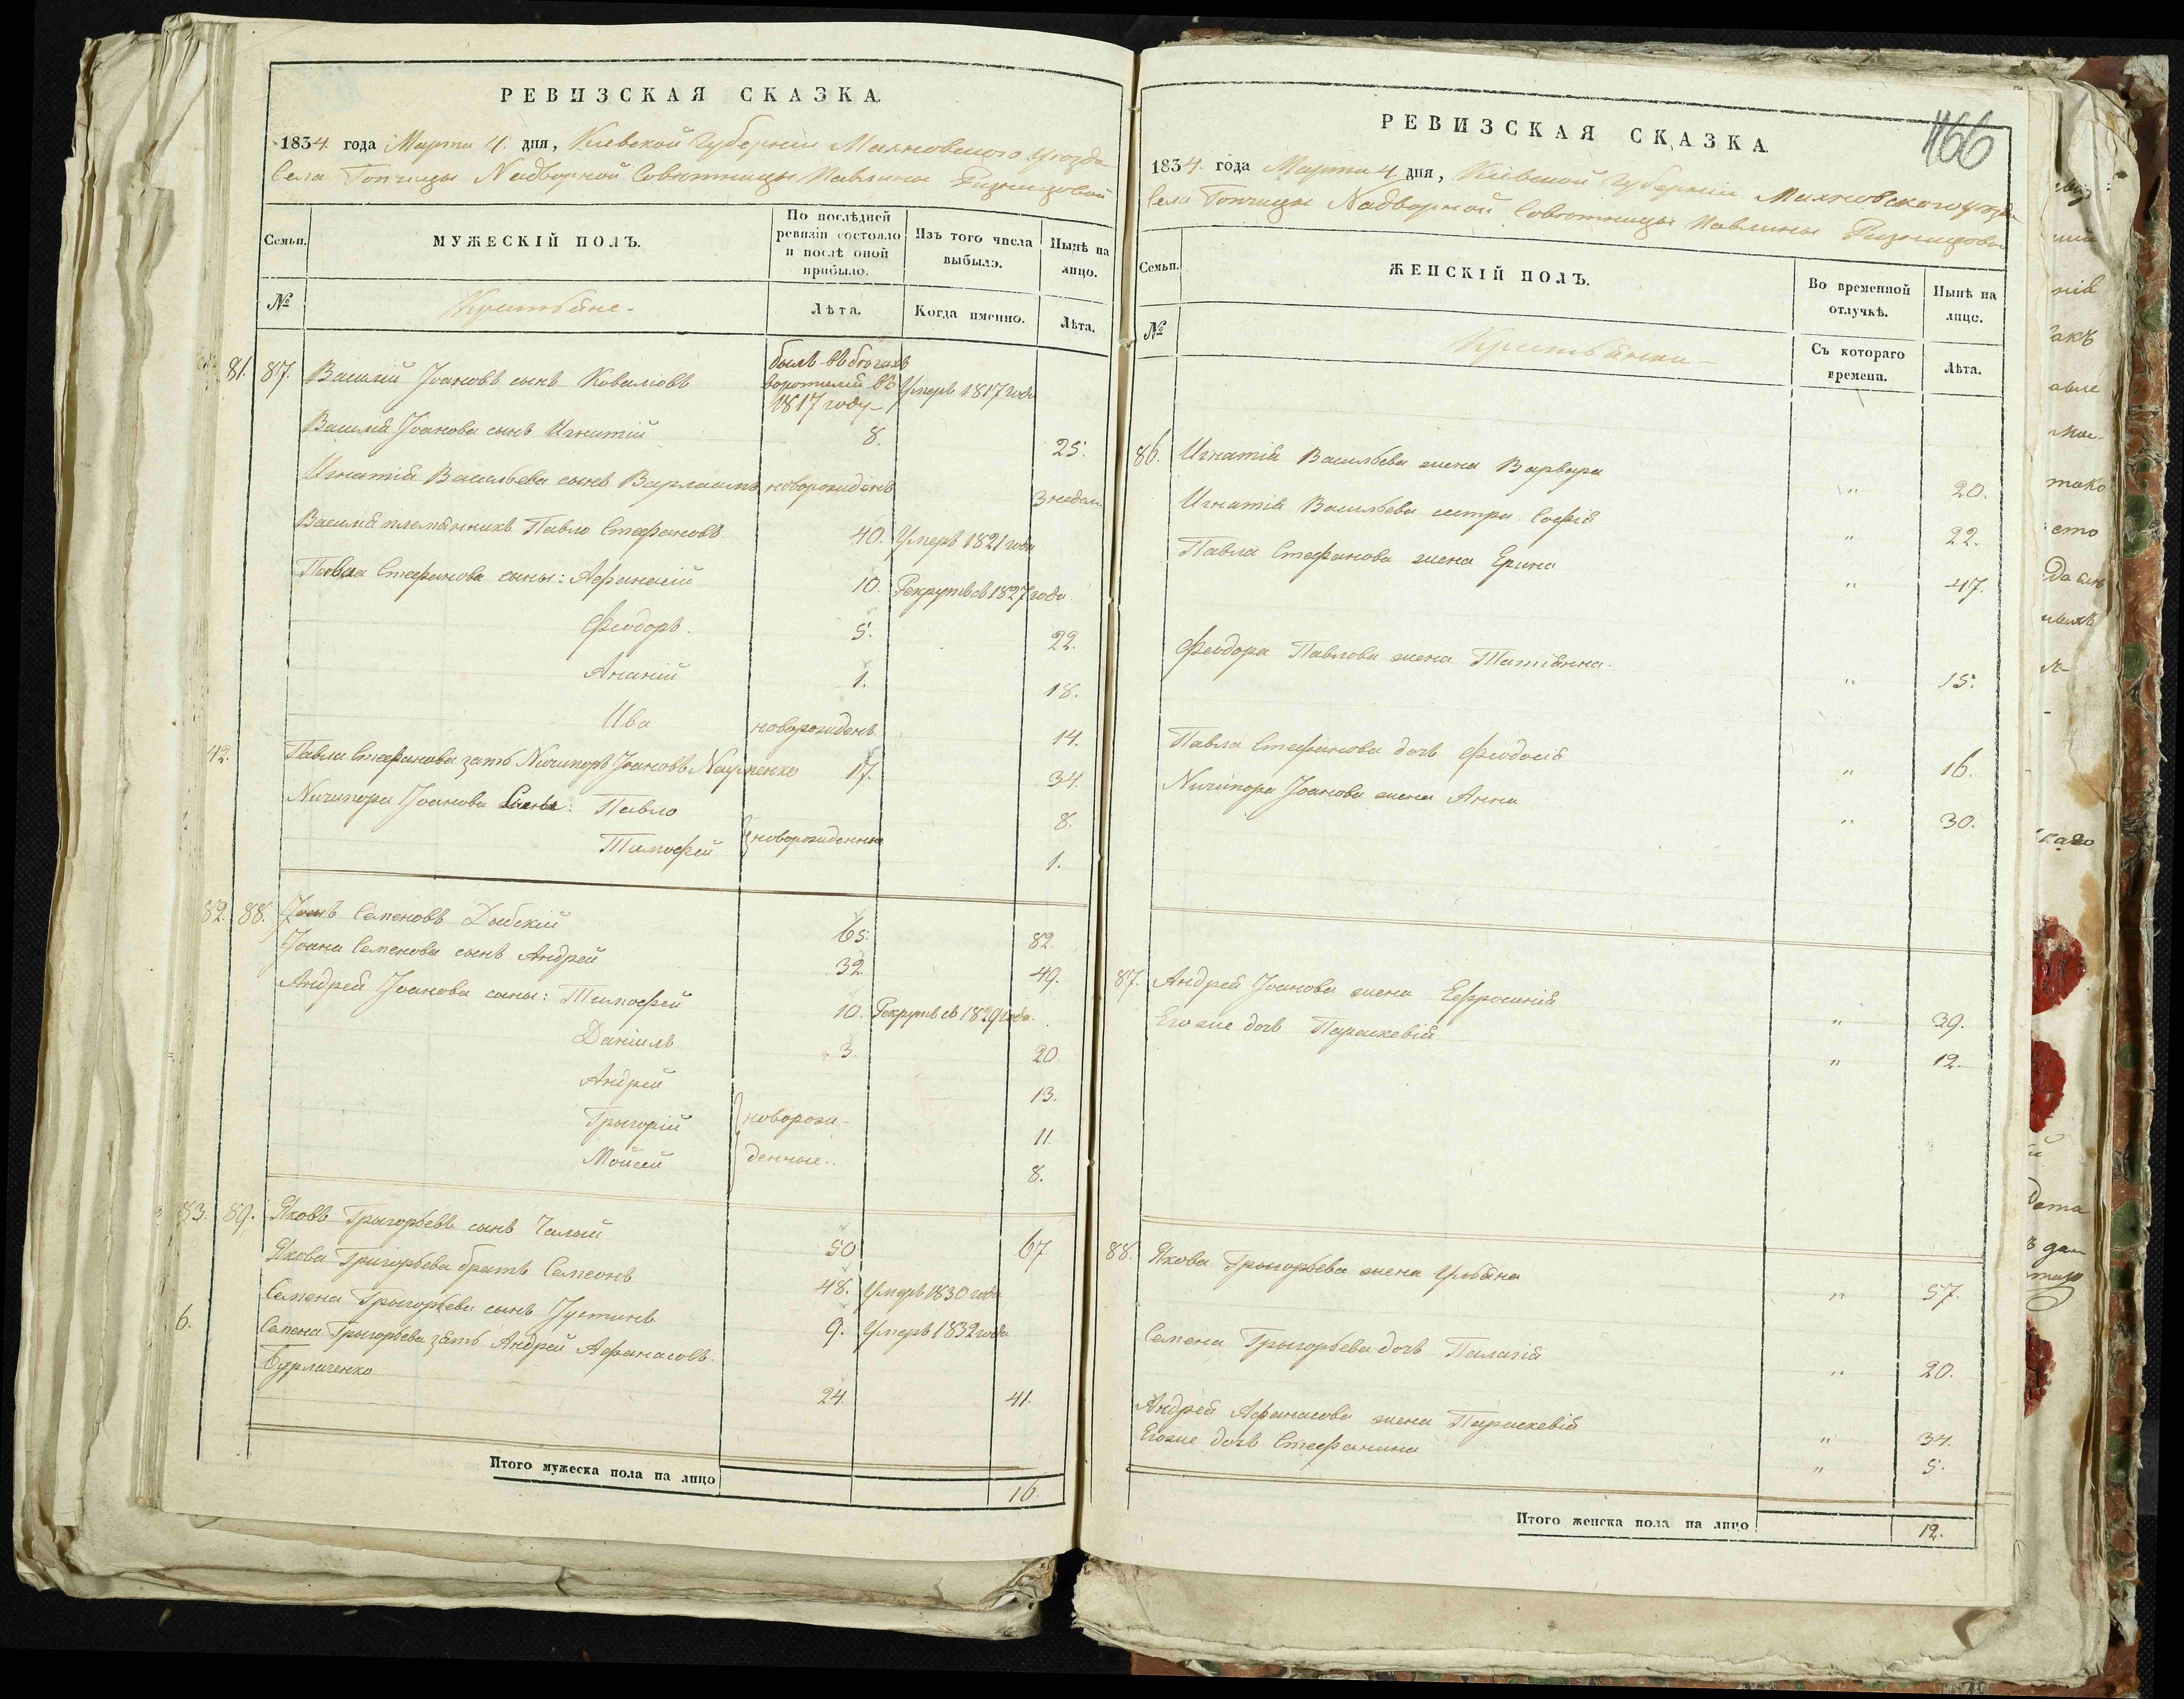 РЕВИЗСКАЯ СКАЗКА
1834 года Марта 4 дня, Киевской Губернии Махновского уезда
Села Топчицы Надворной Советницы Павлины Ризнцовой
Семьи.
МУЖЕСКІЙ ПОЛЪ.
По послѣдней ревизіи состояло и послѣ оной прибыло.
Изъ того числа выбыло.
Нынѣ на лицо.
№
Крестьяне
Лѣта.
Когда именно.
Лѣта.
81. 87. Василий Іоановъ сынъ Коваліовъ былъ въ бегахъ воротился въ 1817 году Умеръ 1817 года
Василія Іоанова сынъ Игнатій 8. 25.
Игнатія Васильева сынъ Варлаамъ новорожденъ 3 недел.
Василія племянникъ Павло Стефановъ 40. Умеръ 1821 года
Павла Стефанова сыны: Афанасій 10. Рекрутъ съ 1827 года
Феодоръ. 5. 22.
Ананій 1. 18.
Ива новорожденъ 14.
42. Павла Стефанова зять Ничипоръ Іоановъ Науменко 17. 34.
Ничипора Іоанова Сыны: Павло 8.
Тимофей новорожденные 1.
82. 88. Іоанъ Семеновъ 65. 82.
Іоана Семенова сынъ Андрей 32. 49.
Андрея Іоанова сыны: Тимофей 10. Рекрутъ съ 1829 года.
Даніилъ 3. 20.
Андрей 13.
Григорій новорож- 11.
Мойсей денные.. 8.
83. 89. Яковъ Григорьевъ сынъ Чалый 50 67
Якова Григорьева братъ Семеонъ 48. Умеръ 1830 года
Семена Григорьева сынъ Іустинъ 9. Умеръ 1832 года
6. Семена Григорьева зять Андрей Афанасовъ
Бурлаченко 24. 41.
Итого мужеска пола на лицо 16.
166
РЕВИЗСКАЯ СКАЗКА
1834 года Марта 4 дня, Киевской Губернии Махновского уезда
Села Топчицы Надворной Советницы Павлины
Семьи.
ЖЕНСКІЙ ПОЛЪ.
Во временной отлучкѣ.
Нынѣ на лицо.
№
Крестьянки
Съ котораго времени.
Лѣта.
86. Игнатія Васильева жена Варвара " 20.
Игнатія Васильева сестра Софія " 22.
Павла Стефанова жена Ерина " 47.
Феодора Павлова жена Татіянна. " 15.
Павла Стефанова дочъ Феодосія " 16.
Ничипора Іоанова жена Анна " 30.
87. Андрея Іоанова жена Ефросинія " 39.
Его же дочъ Параскевія " 12.
88. Якова Григорьева жена Ульяна " 57.
Семена Григорьева дочъ Палагія " 20.
Андрея Афанасова жена Параскевія " 34.
Его же дочъ Стефанина " 5.
Итого женска пола на лицо 12.